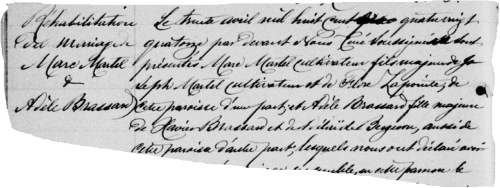 Réhabilitation
du mariage
Marc Martel
&
Adèle Brassard
Le trente avril mil huit cent quatrevingt
quatorze par devant Nous Curé soussigné se sont
présentés Marc Martel cultivateur fils majeur de Jo
seph Martel cultivateur et de Lapointe, de
cette paroisse d'une part; et Adèle Brassard fille majeure
de Xavier Brassard et de Bergeron, aussi de
cette paroisse d'autre part; lesquels nous ont déclaré avoir
en cette paroisse le